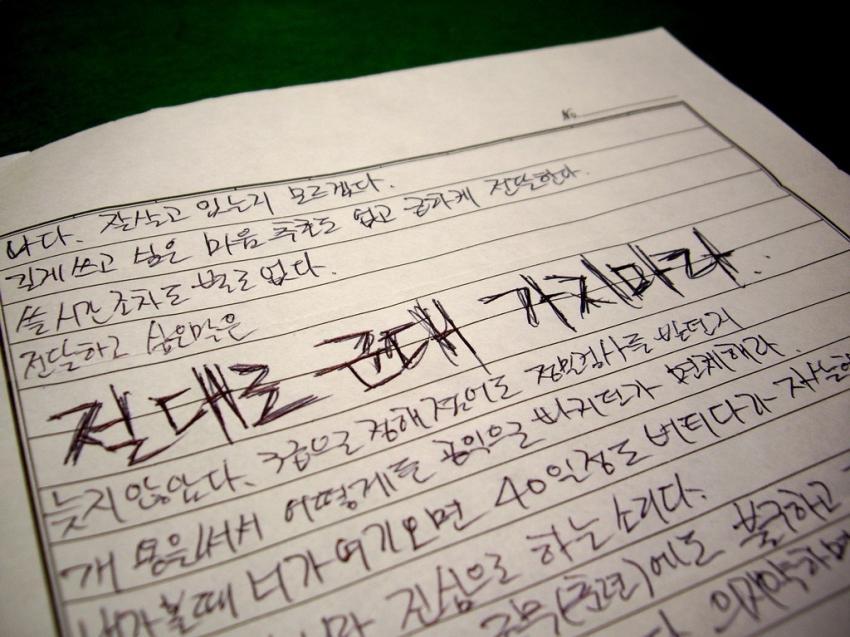 No.
나다. 잘살고 있는지 모르겠다.
길게 쓰고 싶은 마음 추호도 없고 급하게 전달한다.
쓸 시간조차도 별로 없다.
전달하고 싶은말은
절대로 군대 가지마라..
늦지 않았다. 3급으로 정해졌어도 정밀검사를 받던지
어떻게든 공익으로 빠지던가 면제해라.
때 너가 여기오면 40일정도 버티다가
진심으로 하는 소리다.
에도 불구하고
의지약하면